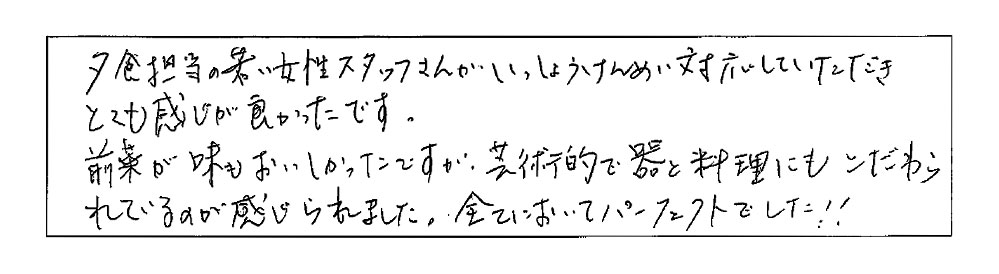 夕食担当の若い女性スタッフさんがいっしょうけんめい対応していただき
とても感じが良かったです。
前菜が味もおいしかったですが、芸術的で器と料理にもこだわら
れているのが感じられました。全てにおいてパーフェクトでした!!